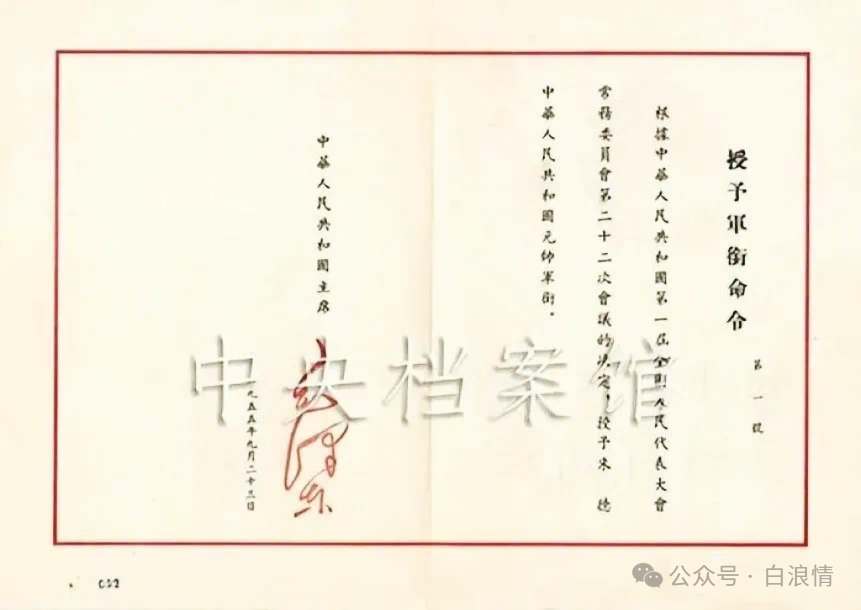 授予軍銜命令
第一號
根據中華人民共和國第一屆全國人民代表大會
常務委員會第二十二次會議的決定，授予朱 德
中華人民共和國元帥軍銜。
中華人民共和國主席
毛澤东
一九五五年九月二十三日
中央档案馆
002
公众号·白浪情